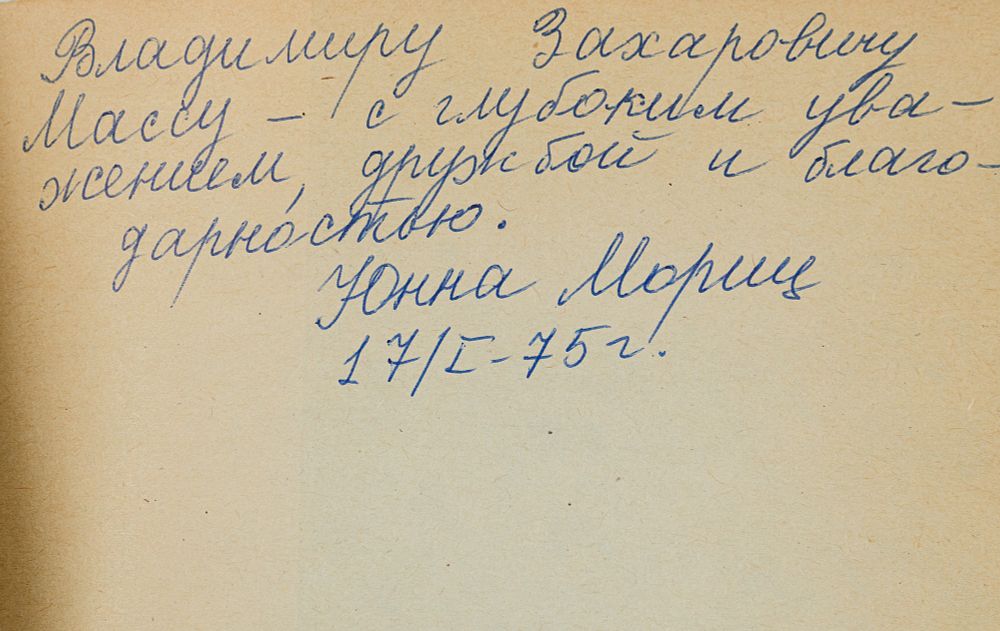 Владимиру Захаровичу
Массу – с глубоким ува-
жением, дружбой и благо-
дарностью.
Юнна Мориц
17/I-75г.